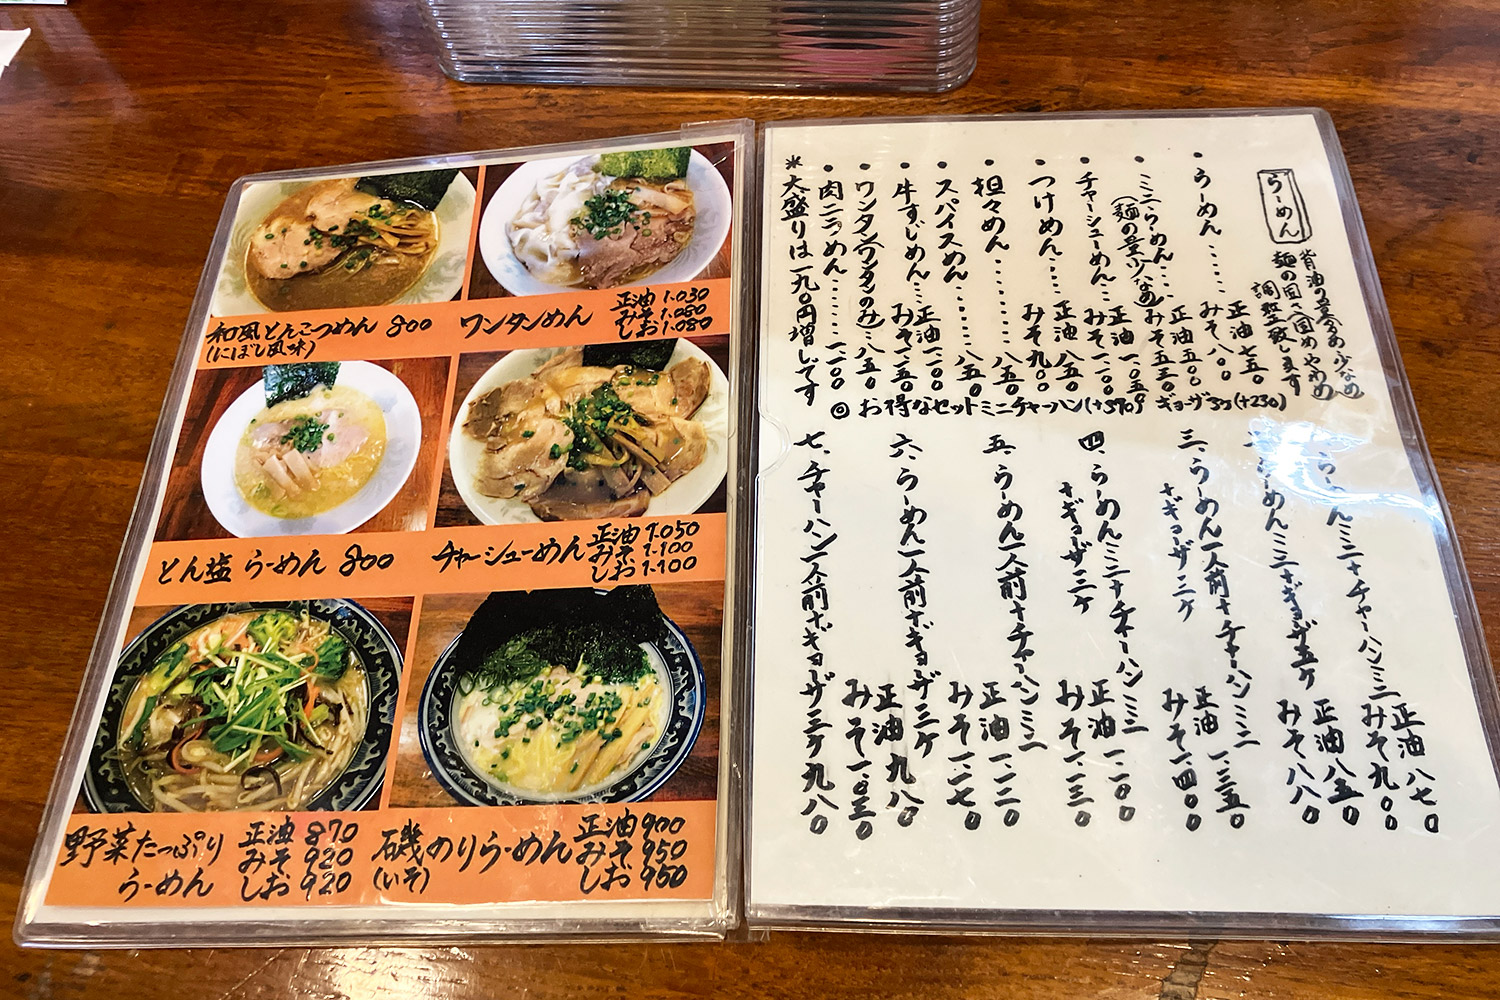 和風とんこつめん 800
(にぼし風味)
ワンタンめん
正油 1.030
みそ 1.080
しお 1.080
とん塩 らーめん 800
チャーシューめん
正油 1.050
みそ 1.100
しお 1.100
野菜たっぷり
らーめん
正油 870
みそ 920
しお 920
磯のりらーめん
(いそ)
正油 900
みそ 950
しお 950
らーめん
背油の量 多め 少なめ
麺の固さ 固め やわめ
調整致します
・らーめん…… 正油 七五〇
みそ 八〇〇
・ミニらーめん… 正油 五〇〇
(麺の量少なめ) みそ 五五〇
・チャーシューめん… 正油 一.〇五〇
みそ 一.一〇〇
・つけめん…… 正油 八五〇
みそ 九〇〇
・担々めん……… 八五〇
・スパイスめん…… 八五〇
・牛すじめん… 正油 一.一〇〇
みそ 一.一五〇
・ワンタン(ワンタンのみ)… 八五〇
・肉二つめん…… 一.一〇〇
※大盛りは一九〇円増しです
◎ お得なセット ミニチャーハン(+370) ギョーザ3ケ(+230)
らーめんミニ+チャーハンミニ 正油 八七〇
みそ 九〇〇
らーめんミニ+ギョーザ五ケ 正油 八五〇
みそ 八八〇
三、らーめん一人前+チャーハンミニ
+ギョーザ三ケ 正油 一.三五〇
みそ 一.四〇〇
四、らーめんミニ+チャーハンミニ
+ギョーザ三ケ 正油 一.一〇〇
みそ 一.一三〇
五、らーめん一人前+チャーハンミニ
正油 一.一二〇
みそ 一.一七〇
六、らーめん一人前+ギョーザ三ケ
正油 九八〇
みそ 一.〇三〇
七、チャーハン一人前+ギョーザ三ケ 九八〇